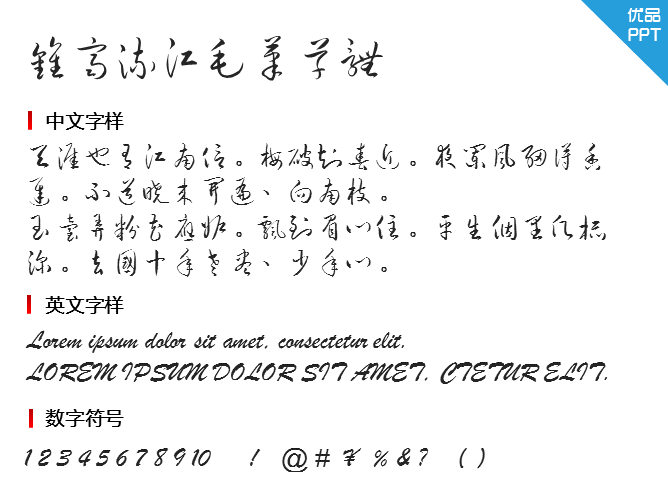 优品
PPT
鍾齊流江毛筆草體
中文字样
天涯也有江南信。梅破知春近。夜闌風細得香
遲。不道晓来開遍、向南枝。
玉臺弄粉花應妒。飄到眉心住。平生個里愿杯
深。去國十年老盡、少年心。
英文字样
Lorem ipsum dolor sit amet, consectetur elit,
LOREM IPSUM DOLOR SIT AMET, CTETUR ELIT,
数字符号
1 2 3 4 5 6 7 8 9 10 ! @ # ¥ % & ? ( )